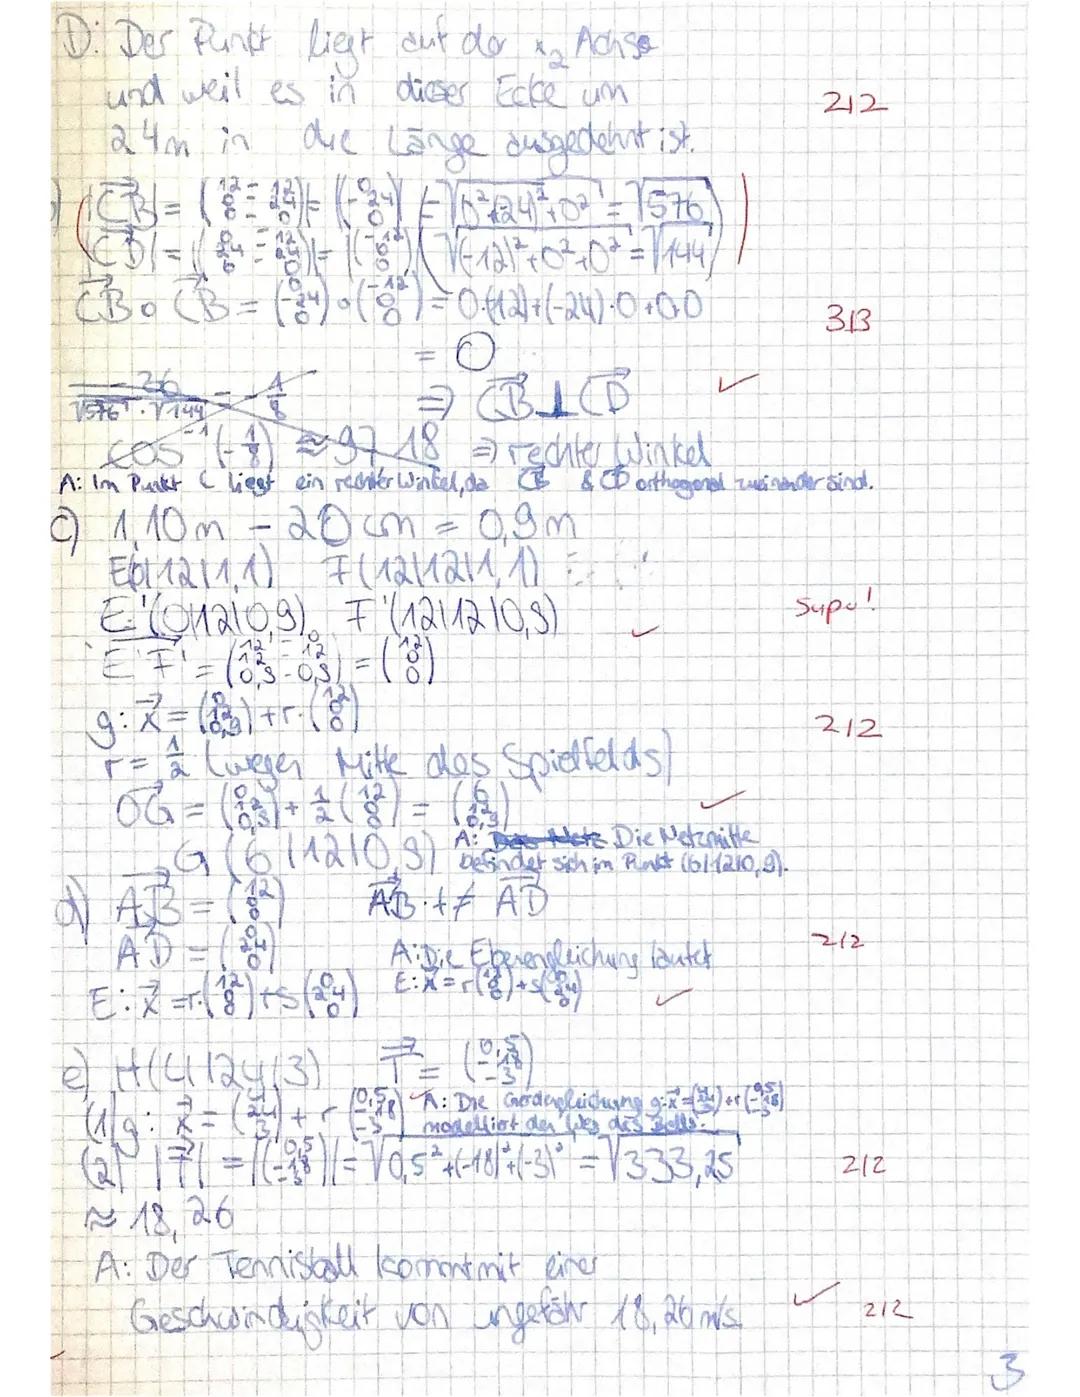 D: Der Punkt liegt auf der x₂ Achse
und weil es in dieser Ecke um
24m in die Länge ausgedehnt ist. 2/2
b) (|CB→| = |(12 - 12, 0 - 24, 0 - 0)| = |(0, -24, 0)| = √(0² + (-24)² + 0²) = √576
|CD→| = |(0 - 12, 24 - 24, 0 - 0)| = |(-12, 0, 0)| (√((-12)² + 0² + 0²) = √144)
CB→ ∘ CB→ = (0, -24, 0) ∘ (-12, 0, 0) = 0·(12) + (-24)·0 + 0·0 3/3
= 0
-36 / (√576 · √144) = -1/8 ⇒ CB→ ⊥ CD→ ✓
cos⁻¹(-1/8) ≈ 97,18 ⇒ rechter Winkel
A: Im Punkt C liegt ein rechter Winkel, da CB→ & CD→ orthogonal zueinander sind.
c) 1,10m - 20cm = 0,9m
E(0|12|1,1) F(12|12|1,1)
E'(0|12|0,9) F'(12|12|0,9) ✓ Supa!
E'F'→ = (12 - 0, 12 - 12, 0,9 - 0,9) = (12, 0, 0)
g: x→ = (0, 12, 0,9) + r·(12, 0, 0) 2/2
r = 1/2 (wegen Mitte des Spielfelds)
OG→ = (0, 12, 0,9) + 1/2 (12, 0, 0) = (6, 12, 0,9) ✓
G(6|12|0,9) A: Das Netz Die Netzmitte
befindet sich im Punkt (6|12|0,9).
d) AB→ = (12, 0, 0) AB→ · t ≠ AD→
AD→ = (0, 24, 0) A: Die Ebenengleichung lautet 2/2
E: x→ = r·(12, 0, 0) + s(0, 24, 0) E: x→ = r(12, 0, 0) + s(0, 24, 0) ✓
e) H(4|24|3) T→ = (0,5, -18, -3)
(1) g: x→ = (4, 24, 3) + r (0,5, -18, -3) ✓ A: Die Geradengleichung g: x→ = (4, 24, 3) + r(0,5, -18, -3)
modelliert den Weg des Balls.
(2) |T→| = |(0,5, -18, -3)| = √(0,5² + (-18)² + (-3)²) = √333,25 2/2
≈ 18,26
A: Der Tennisball kommt mit einer
Geschwindigkeit von ungefähr 18,26 m/s. ✓ 2/2
3